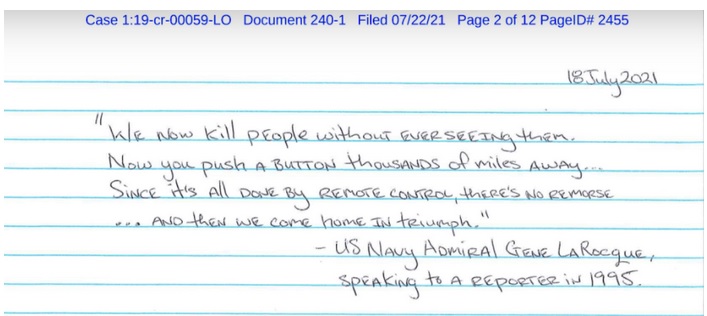 Case 1:19-cr-00059-LO Document 240-1 Filed 07/22/21 Page 2 of 12 PageID# 2455
18 July 2021
"We now kill people without ever seeing them.
Now you push a button thousands of miles away...
Since it's all done by remote control, there's no remorse
... and then we come home in triumph."
- US Navy Admiral Gene LaRocque,
speaking to a reporter in 1995.